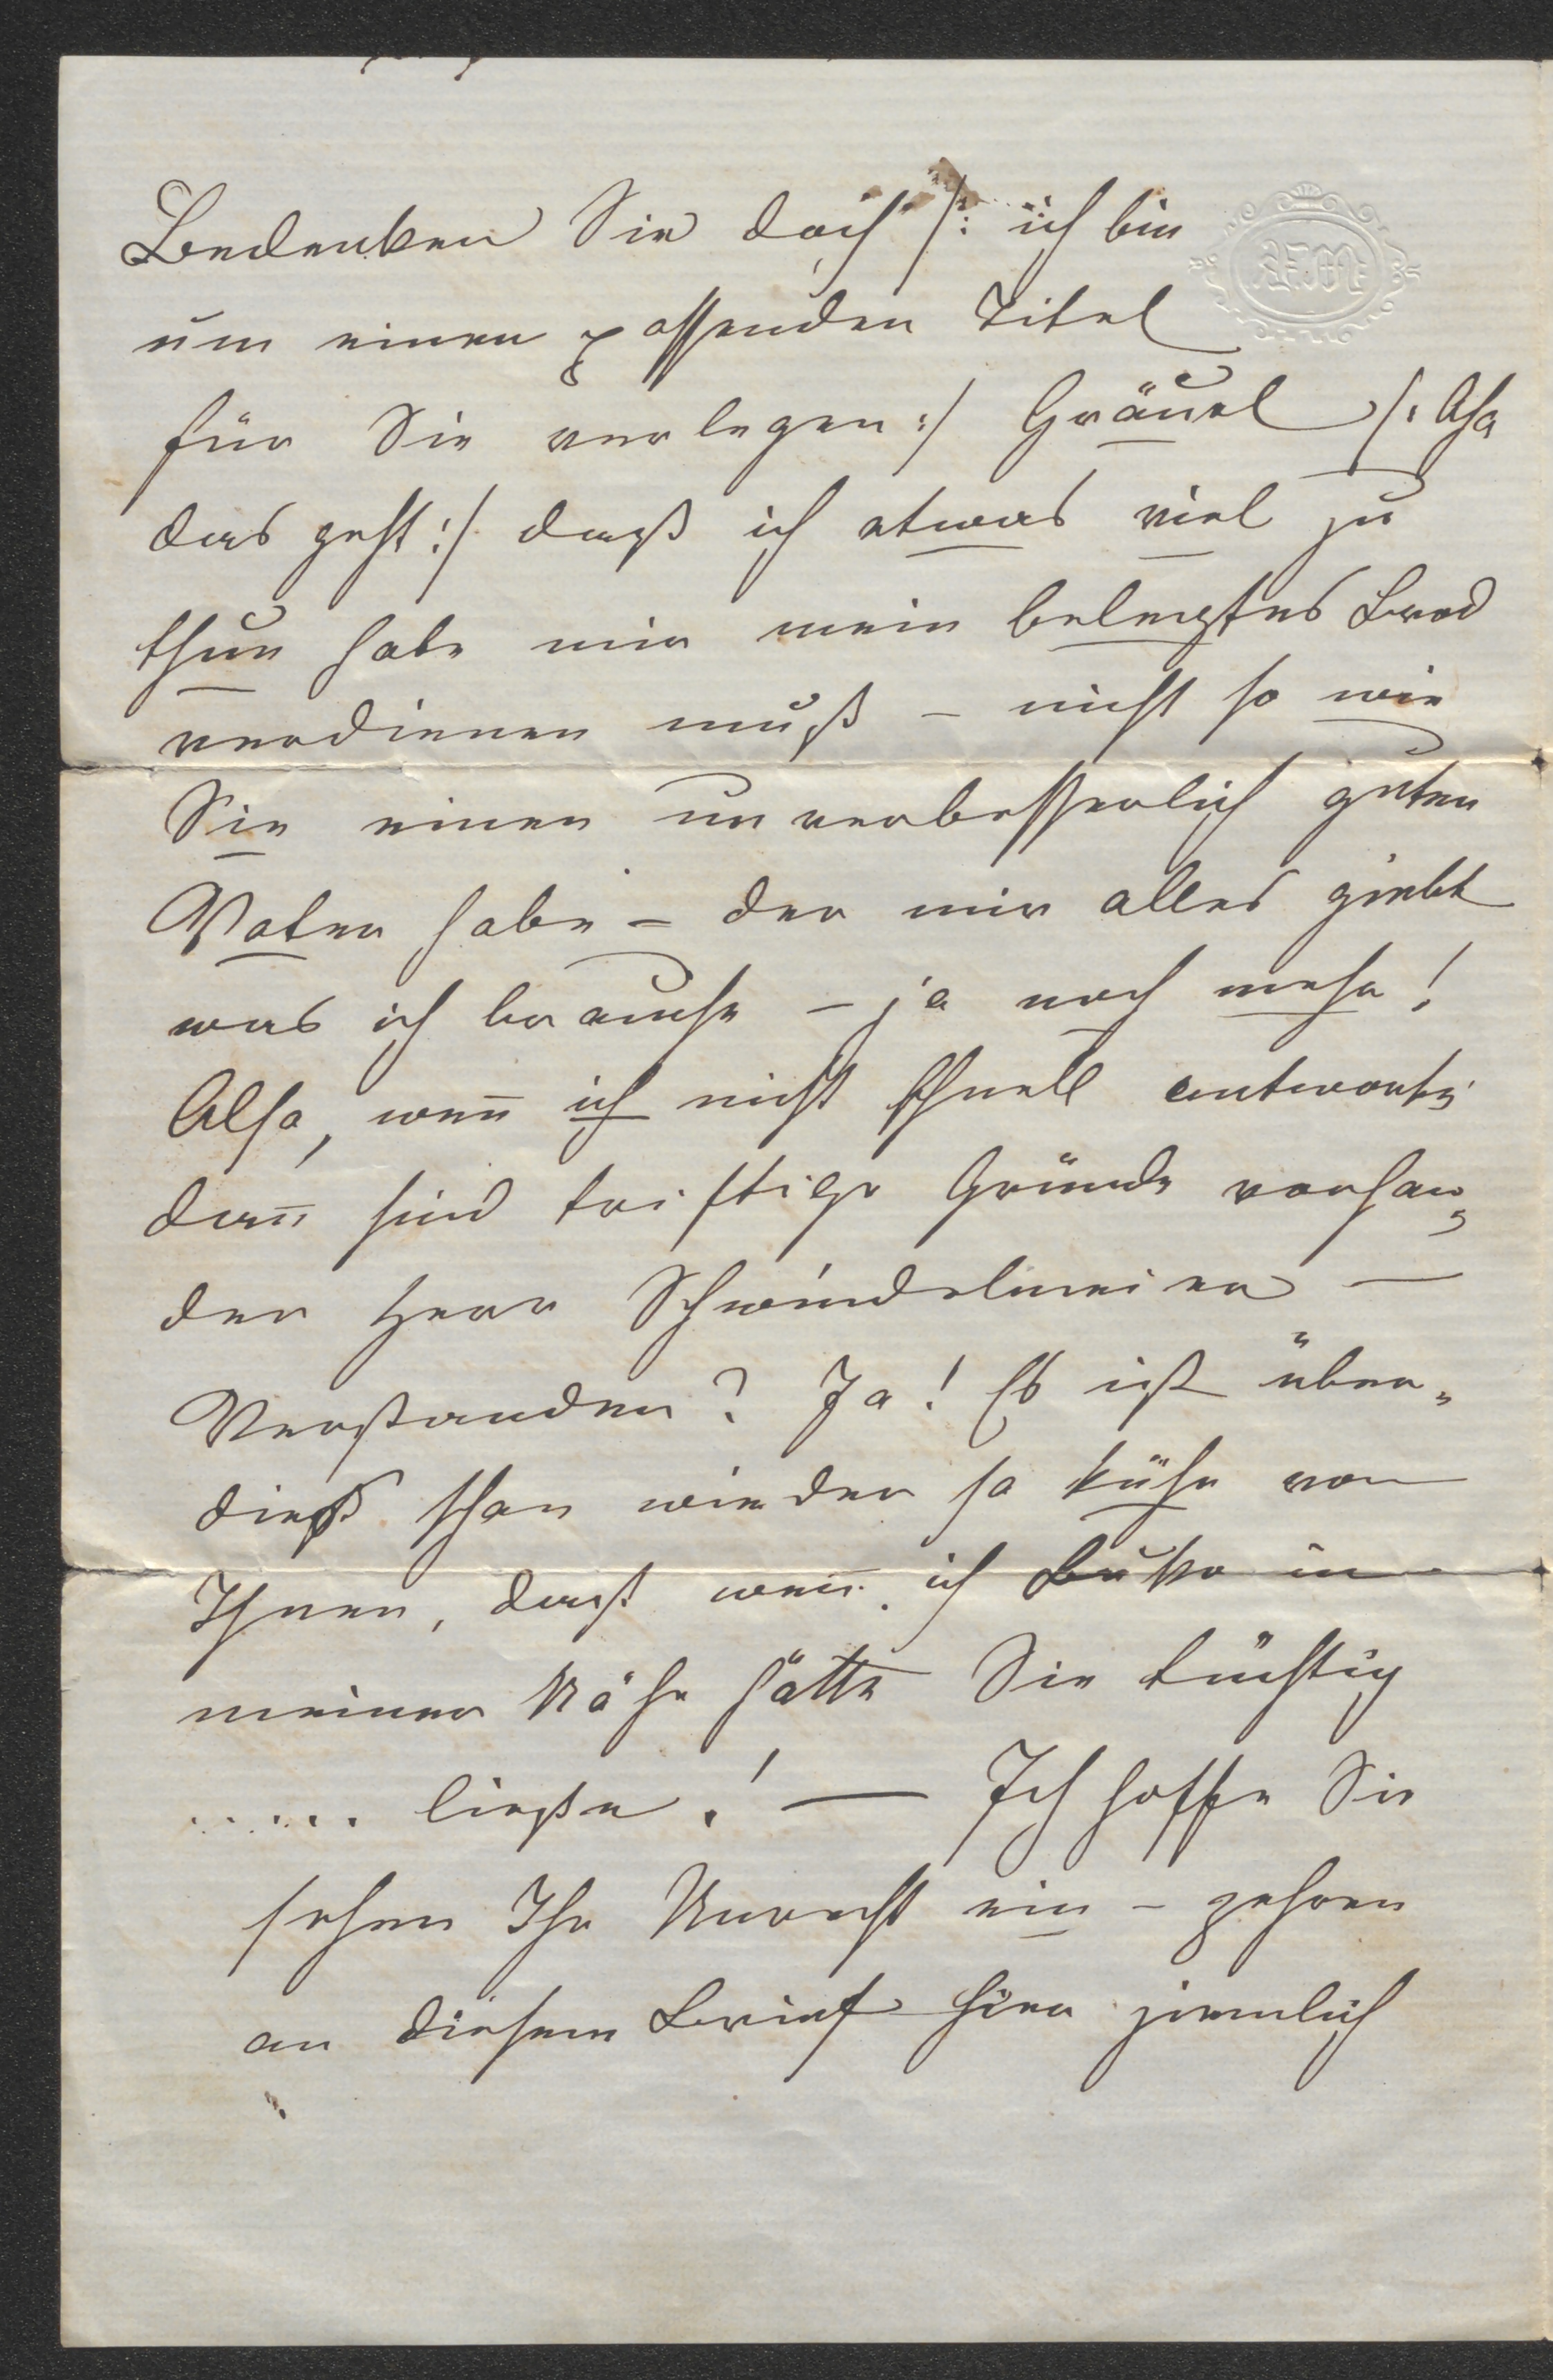 Bedenken Sie doch /: ich bin
um einen passenden Titel
für Sie verlegen :/ Gräuel /: Aha
das geht :/ daß ich etwas viel zu
thun habe mir mein belegtes Brod
verdienen muß – nicht so wie
Sie einen unverbesserlich guten
Vater habe – der mir alles giebt
was ich brauche – ja noch mehr!
Also, wen̄ ich nicht schnell antworte,
dan̄ sind triftige Gründe vorhan„
den Herr Schwindelmeier —
Verstanden? Ja! Es ist über„
dieß schon wieder so kühn von
Ihnen, daß wen̄ ich in
meiner Nähe hätte Sie tüchtig
...... ließe! — Ich hoffe Sie
sehen Ihr Unrecht ein – zehren
an diesem Brief hier ziemlich